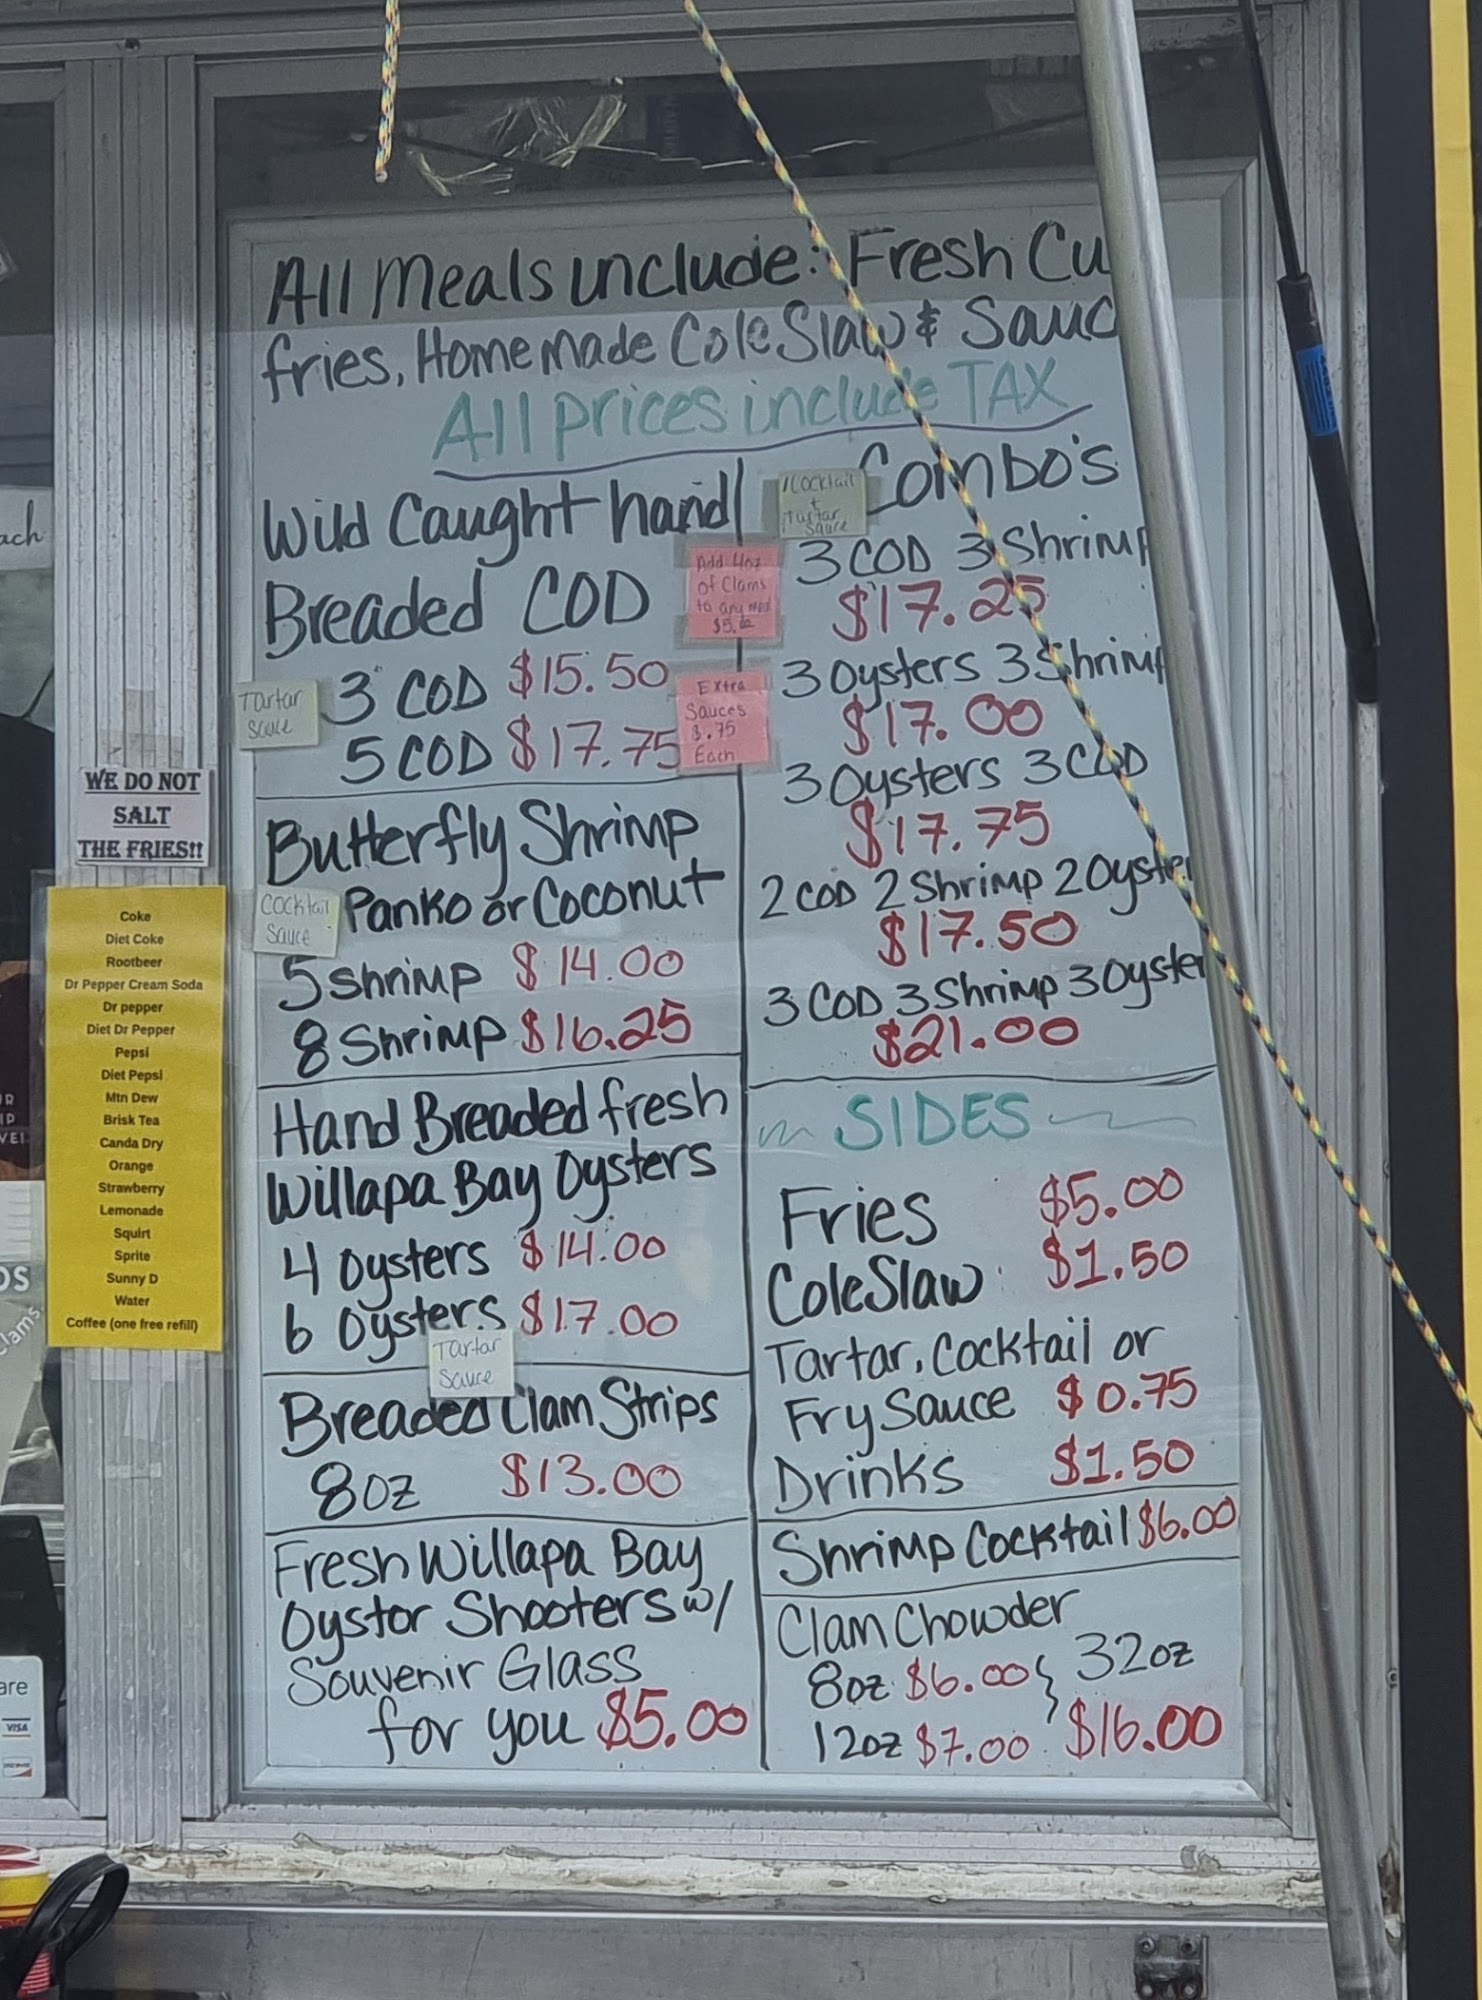 All Meals include: Fresh Cu
fries, Homemade Cole Slaw & Sauc
All prices include TAX
Wild Caught hand
Breaded COD
Tartar
Sauce
3 COD $15.50
5 COD $17.75
Add 4oz
of Clams
to any meal
Extra
Sauces
$.75
Each
Butterfly Shrimp
Cocktail
Sauce
Panko or Coconut
5 Shrimp $14.00
8 Shrimp $16.25
Hand Breaded fresh
Willapa Bay Oysters
4 Oysters $14.00
6 Oysters $17.00
Tartar
Sauce
Breaded Clam Strips
8oz $13.00
Fresh Willapa Bay
Oystor Shooters w/
Souvenir Glass
for you $5.00
Combo's
1 Cocktail
+
1 Tartar
Sauce
3 COD 3 Shrimp
$17.25
3 Oysters 3 Shrimp
$17.00
3 Oysters 3 COD
$17.75
2 COD 2 Shrimp 2 Oyster
$17.50
3 COD 3 Shrimp 3 Oyster
$21.00
SIDES
Fries $5.00
Cole Slaw $1.50
Tartar, Cocktail or
Fry Sauce $0.75
Drinks $1.50
Shrimp Cocktail $6.00
Clam Chowder
8oz $6.00 } 32oz
12oz $7.00 $16.00
WE DO NOT
SALT
THE FRIES!!
Coke
Diet Coke
Rootbeer
Dr Pepper Cream Soda
Dr pepper
Diet Dr Pepper
Pepsi
Diet Pepsi
Mtn Dew
Brisk Tea
Canda Dry
Orange
Strawberry
Lemonade
Squirt
Sprite
Sunny D
Water
Coffee (one free refill)
ach
lams
are
VISA
DISCOVER